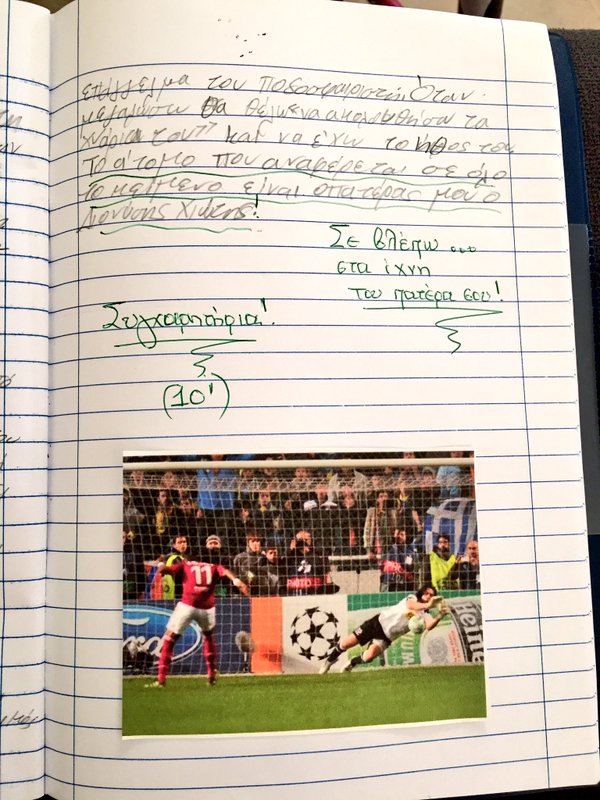 επάγγελμα του ποδοσφαιριστή. Όταν
μεγαλώσω θα ήθελα να ακολουθήσω τα
χνάρια του" και να έχω το ήθος του
Το άτομο που αναφέρεται σε όλο
το κείμενο είναι ο πατέρας μου ο
Διονύσης Χιώτης!
Σε βλέπω...
στα ίχνη
του πατέρα σου!
Συγχαρητήρια!
(10!)
11
PHOTO
Ford
Heine